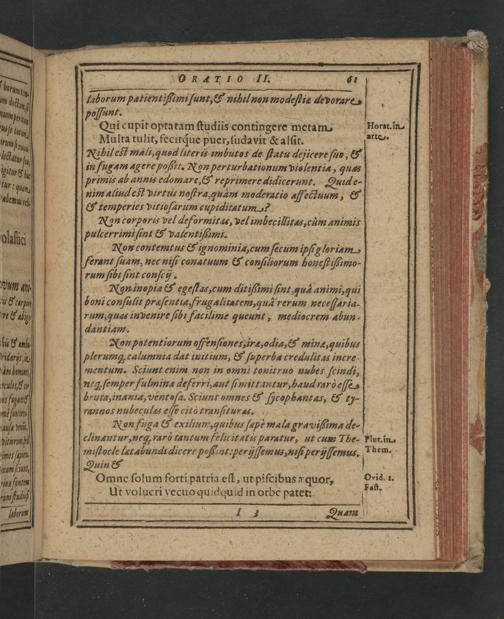 ORATIO II. 61
laborum patientißimi sunt, & nihil non modestiæ devorare
possunt.
Qui cupit optatam studiis contingere metam
Horat. in
Multa tulit, fecitque puer, sudavit & alsit.
arte.
Nihil est mali, quod literis imbutos de statu dejicere suo, &
in fugam agere poßit. Non perturbationum violentia, quas
primis ab annis edomare, & reprimere didicerunt. Quid e-
nim aliud est virtus nostra, quàm moderatio affectuum, &
& temperies vitiosarum cupiditatum?
Non corporis vel deformitas, vel imbecillitas, cùm animis
pulcerrimi sint & valentißimi.
Non contemtus & ignominia, cum secum ipsi gloriam
ferant suam, nec nisi conatuum & consiliorum honestißimo-
rum sibi sint conscij.
Non inopia & egestas, cum ditißimi sint, quà animi, qui
boni consulit præsentia, frugalitatem, quà rerum necessaria-
rum, quas invenire sibi facilime queunt, mediocrem abun-
dantiam.
Non potentiorum offensiones, iræ, odia, & minæ, quibus
plerumq; calumnia dat initium, & superba credulitas incre-
mentum. Sciunt enim non in omni tonitruo nubes scindi,
neq; semper fulmina deferri, aut si mittantur, haud rarò esse
bruta, inania, ventosa. Sciunt omnes & sycophantas, & ty-
rannos nubeculas esse citò transituras.
Non fuga & exilium, quibus sæpè mala gravißima de-
clinantur, neq; rarò tantum felicitatis paratur, ut cum The-
Plut. in
mistocle lætabundi dicere poßint: perijssemus, nisi perijssemus.
Them.
Quin &
Omne solum forti patria est, ut piscibus æquor,
Ovid. 1.
Fast.
Ut volucri vacuo quidquid in orbe patet:
I 3 Quam
laborum